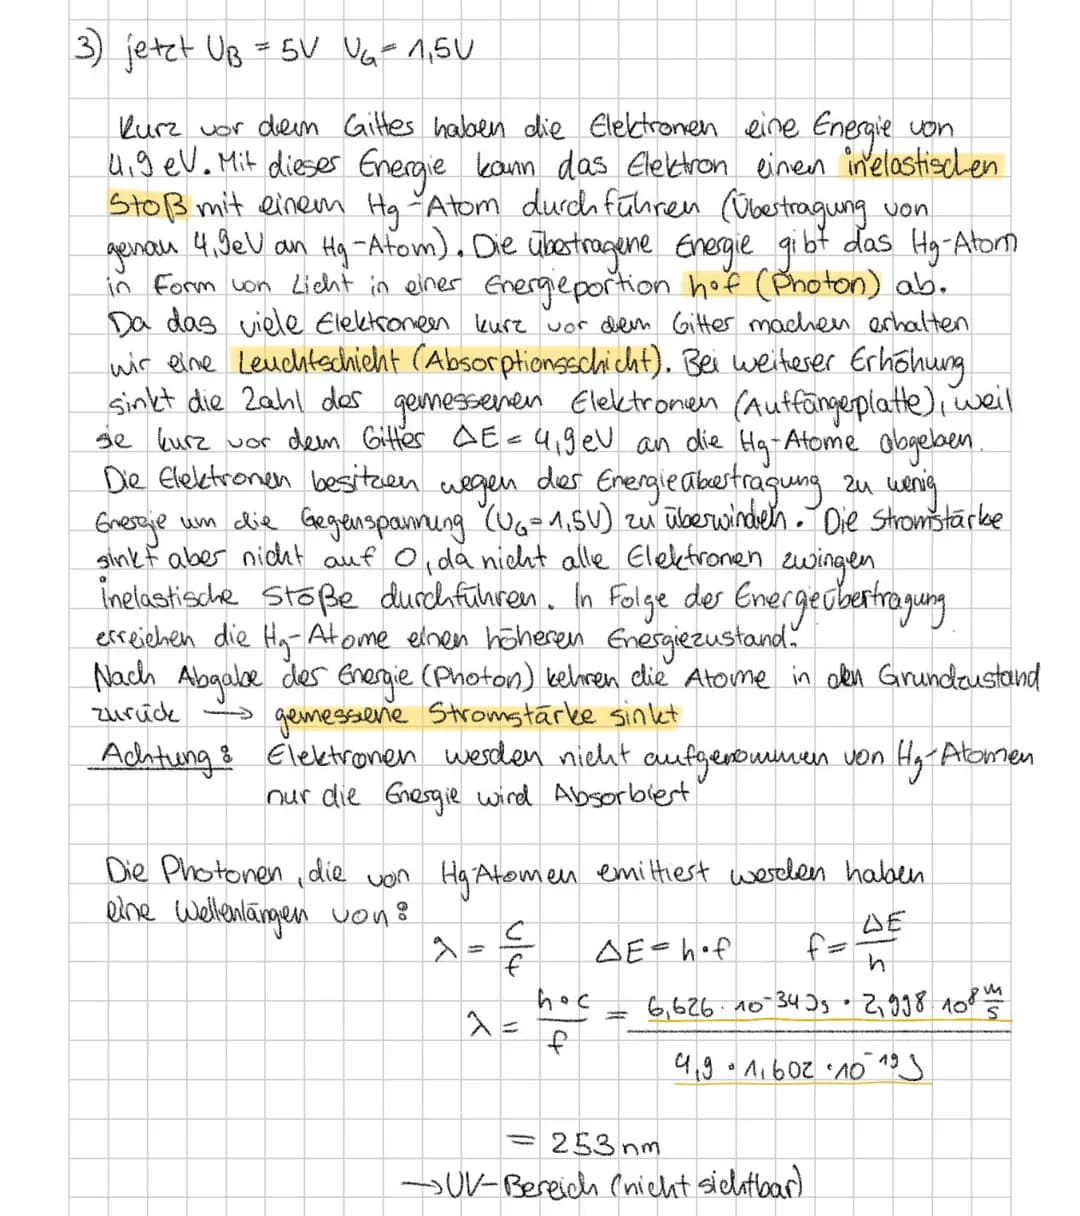 3) jetzt UB = 5V UG = 1,5V
Kurz vor dem Gitter haben die Elektronen eine Energie von
4,9 eV. Mit dieser Energie kann das Elektron einen inelastischen
Stoß mit einem Hg-Atom durchführen (Übertragung von
genau 4,9eV an Hg-Atom). Die übertragene Energie gibt das Hg-Atom
in Form von Licht in einer Energieportion h•f (Photon) ab.
Da das viele Elektroneen kurz vor dem Gitter machen erhalten
wir eine Leuchtschicht (Absorptionsschicht). Bei weiterer Erhöhung
sinkt die Zahl der gemessenen Elektronen (Auffängerplatte), weil
se kurz vor dem Gitter ΔE = 4,9eV an die Hg-Atome abgeben.
Die Elektronen besitzen wegen der Energieübertragung zu wenig
Energie um die Gegenspannung (UG=1,5V) zu überwinden. Die Stromstärke
sinkt aber nicht auf 0, da nicht alle Elektronen zwingen
inelastische Stöße durchführen. In Folge der Energeübertragung
erreichen die Hg-Atome einen höheren Energiezustand.
Nach Abgabe der Energie (Photon) kehren die Atome in den Grundzustand
zurück → gemessene Stromstärke sinkt
Achtung: Elektronen werden nicht aufgenommen von Hg-Atomen
nur die Energie wird Absorbiert
Die Photonen, die von Hg-Atomen emittiert werden haben
eine Wellenlängen von:
λ = c/f ΔE = h•f f = ΔE/h
λ = h•c/f = 6,626 · 10⁻³⁴ Js · 2,998 · 10⁸ m/s / 4,9 • 1,602 · 10⁻¹⁹ J
= 253 nm
→ UV-Bereich (nicht sichtbar)